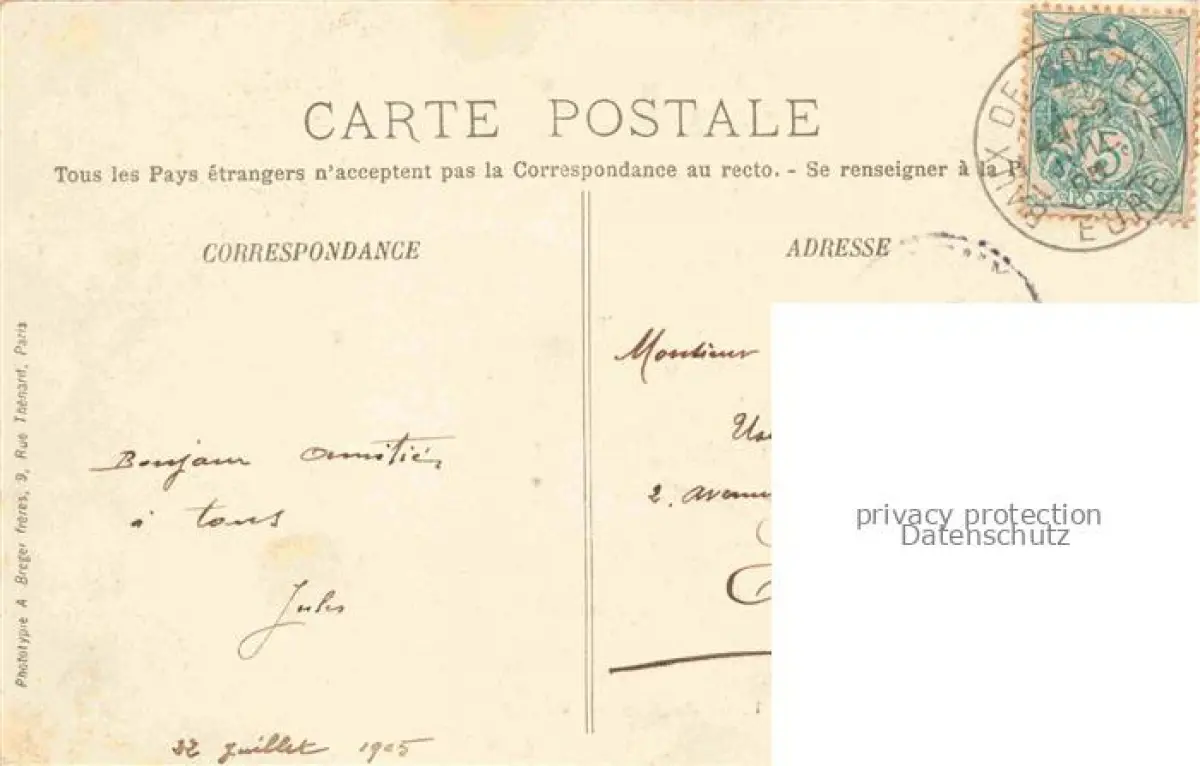 CARTE POSTALE
Tous les Pays étrangers n'acceptent pas la Correspondance au recto. - Se renseigner à la P
CORRESPONDANCE
ADRESSE
BAUX DE BRETEUIL
EURE
5c
POSTES
Monsieur
2, Avenue
Bonjour amitiés
à tous
Jules
22 juillet 1905
Phototypie A Breger frères, 9, Rue Thénard, Paris
privacy protection
Datenschutz